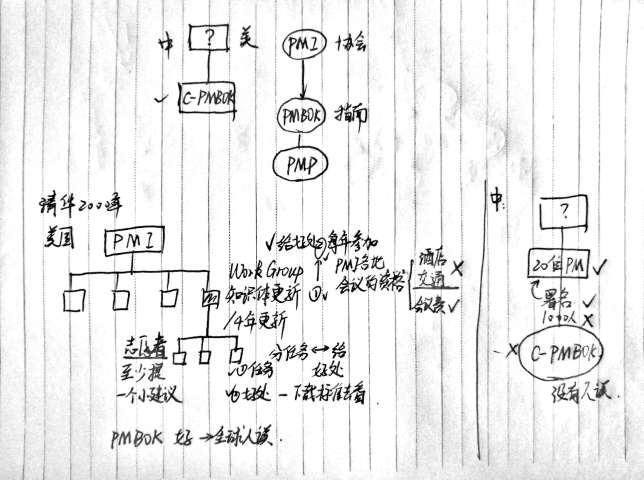 中 ? 美
✓ C-PMBOK
PMI 协会
PMBOK 指南
PMP
清华2000年
美国 PMI
Work Group
知识体更新
/4年更新
志愿者
至少提
一个小建议
①任务
分任务 ↔ 给
好处
好处 — 下载标准去看
✓给好处 ②每年参加
PMI各地
①✓ 会议的资格
酒店
交通 ×
会议费 ✓
PMBOK 好 → 全球认.
中:
?
20位PM ✓
署名 ✓
1000人 ×
× C-PMBOK
没有人认.